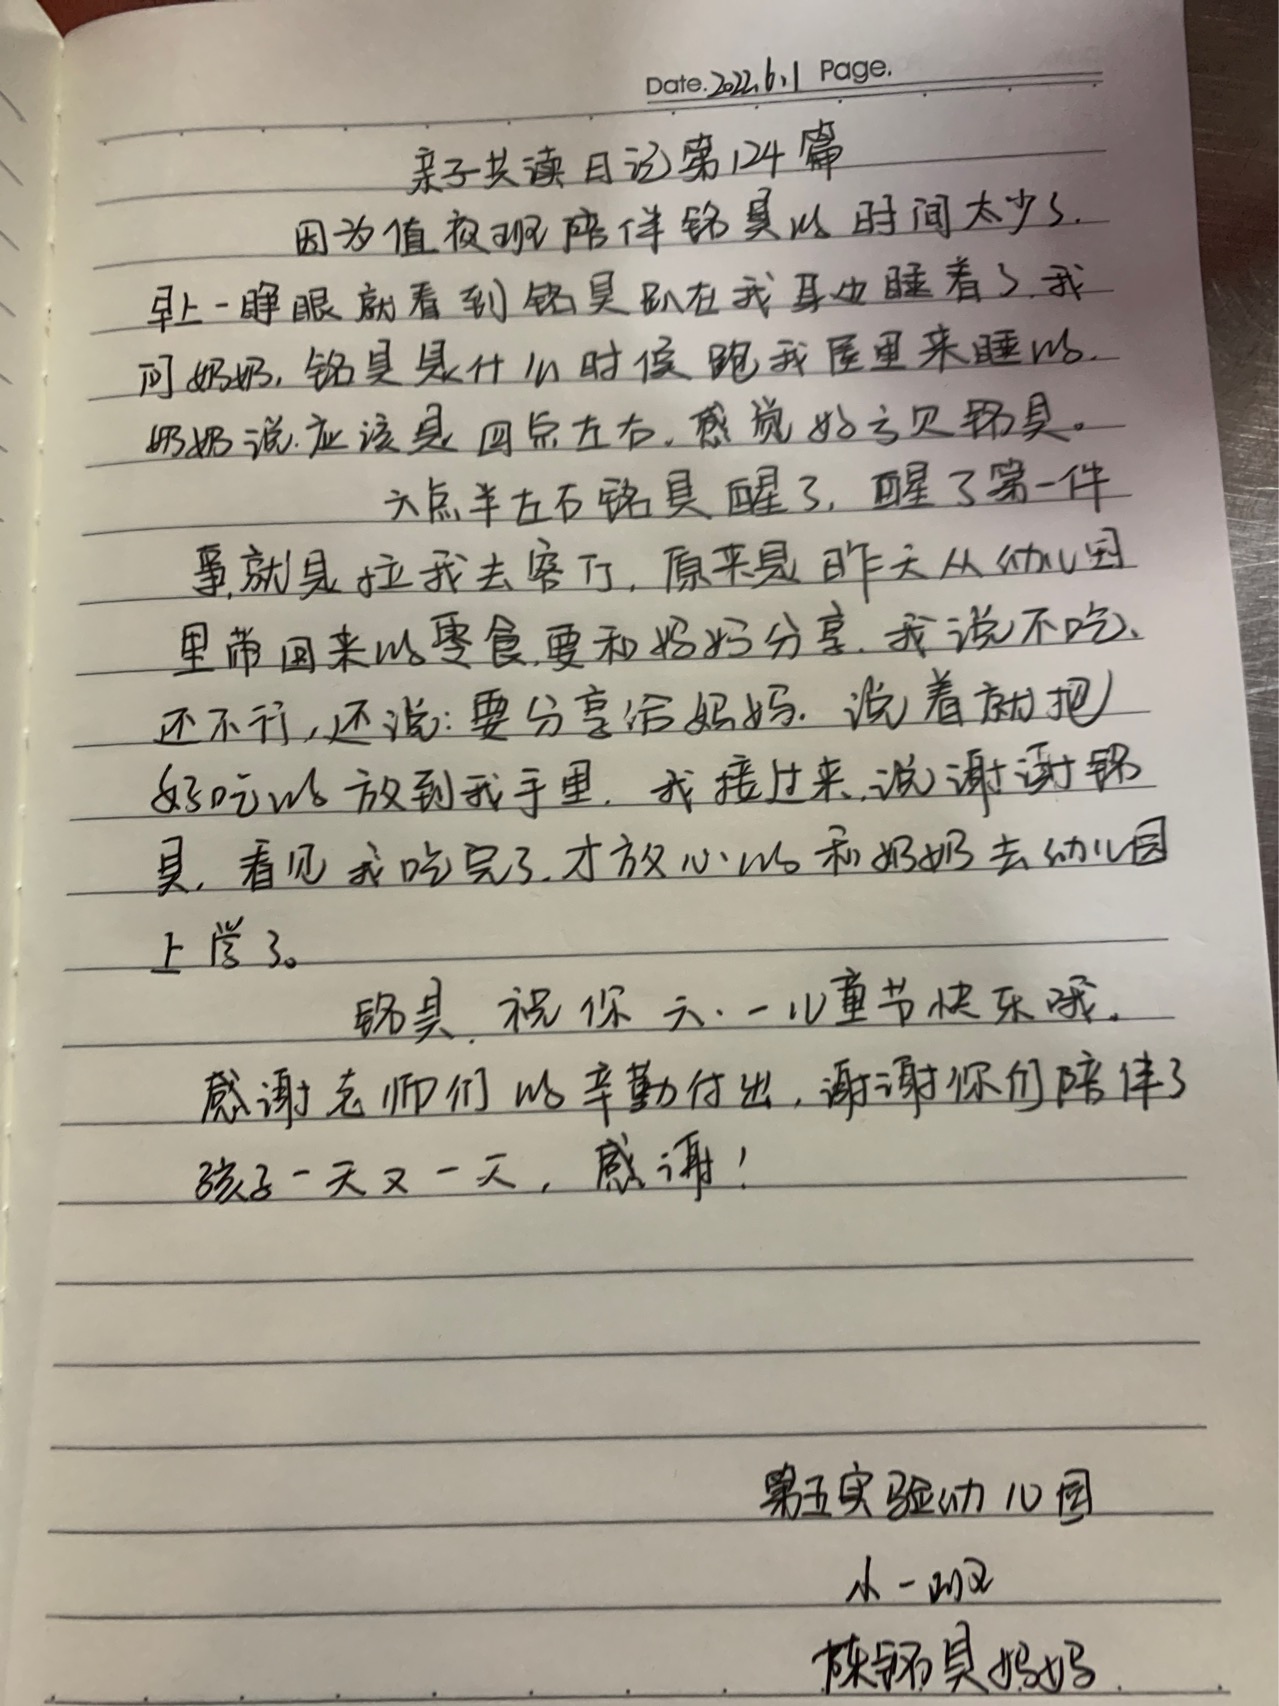 Date.2022.6.1 Page.
亲子共读日记第124篇
因为值夜班陪伴铭具的时间太少了.
早上一睁眼就看到铭具趴在我耳边睡着了.我
问奶奶,铭具是什么时候跑我屋里来睡的.
奶奶说.应该是四点左右.感觉好亏欠铭具。
六点半左右铭具醒了,醒了第一件
事,就是拉我去客厅,原来是昨天从幼儿园
里带回来的零食.要和妈妈分享.我说不吃、
还不行,还说:要分享给妈妈.说着就把
好吃的放到我手里.我接过来.说谢谢铭
具.看见我吃完了.才放心的和奶奶去幼儿园
上学了。
铭具,祝你六·一儿童节快乐哦.
感谢老师们的辛勤付出,谢谢你们陪伴了
孩子一天又一天,感谢!
第五实验幼儿园
小一班
陈铭具妈妈.